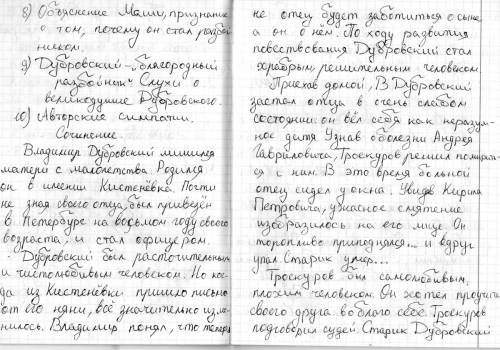 8) Объяснение Маши, признание
о том, почему он стал разбой
ником.
9) Дубровский-„благородный
разбойник" Слухи о
великодушие Дубровского.
10) Авторские симпатии.
Сочинение.
Владимир Дубровский лишился
матери с малолетства. Родился
он в имении Кистенёвка. Почти
не зная своего отца, был привезён
в Петербург на восьмом году своего
возраста, и стал офицером.
Дубровский был расточительным
и чистолюбивым человеком. Но ког
да из Кистенёвки пришло письмо
от его няни, всё значительно изме-
нилось. Владимир понял, что теперь
не отец будет заботиться о сыне
а он о нём. По ходу развития
повествования Дубровский стал
храбрым, решительным человеком
Приехав домой, В. Дубровский
застал отца в очень слабом
состоянии он вёл себя как неразум-
ное дитя Узнав о болезни Андрея
Гавриловича, Троекуров решил помирит
ся с ним. В это время больной
отец сидел у окна. Увидя Кирила
Петровича, ужасное смятение
изобразилось на его лице. Он
торопливо приподнялся... и вдруг
упал. Старик умер...
Троекуров был самолюбивым,
плохим человеком. Он хотел проучить
своего друга во благо себе. Троекуров
подговорил судей. Старик Дубровский